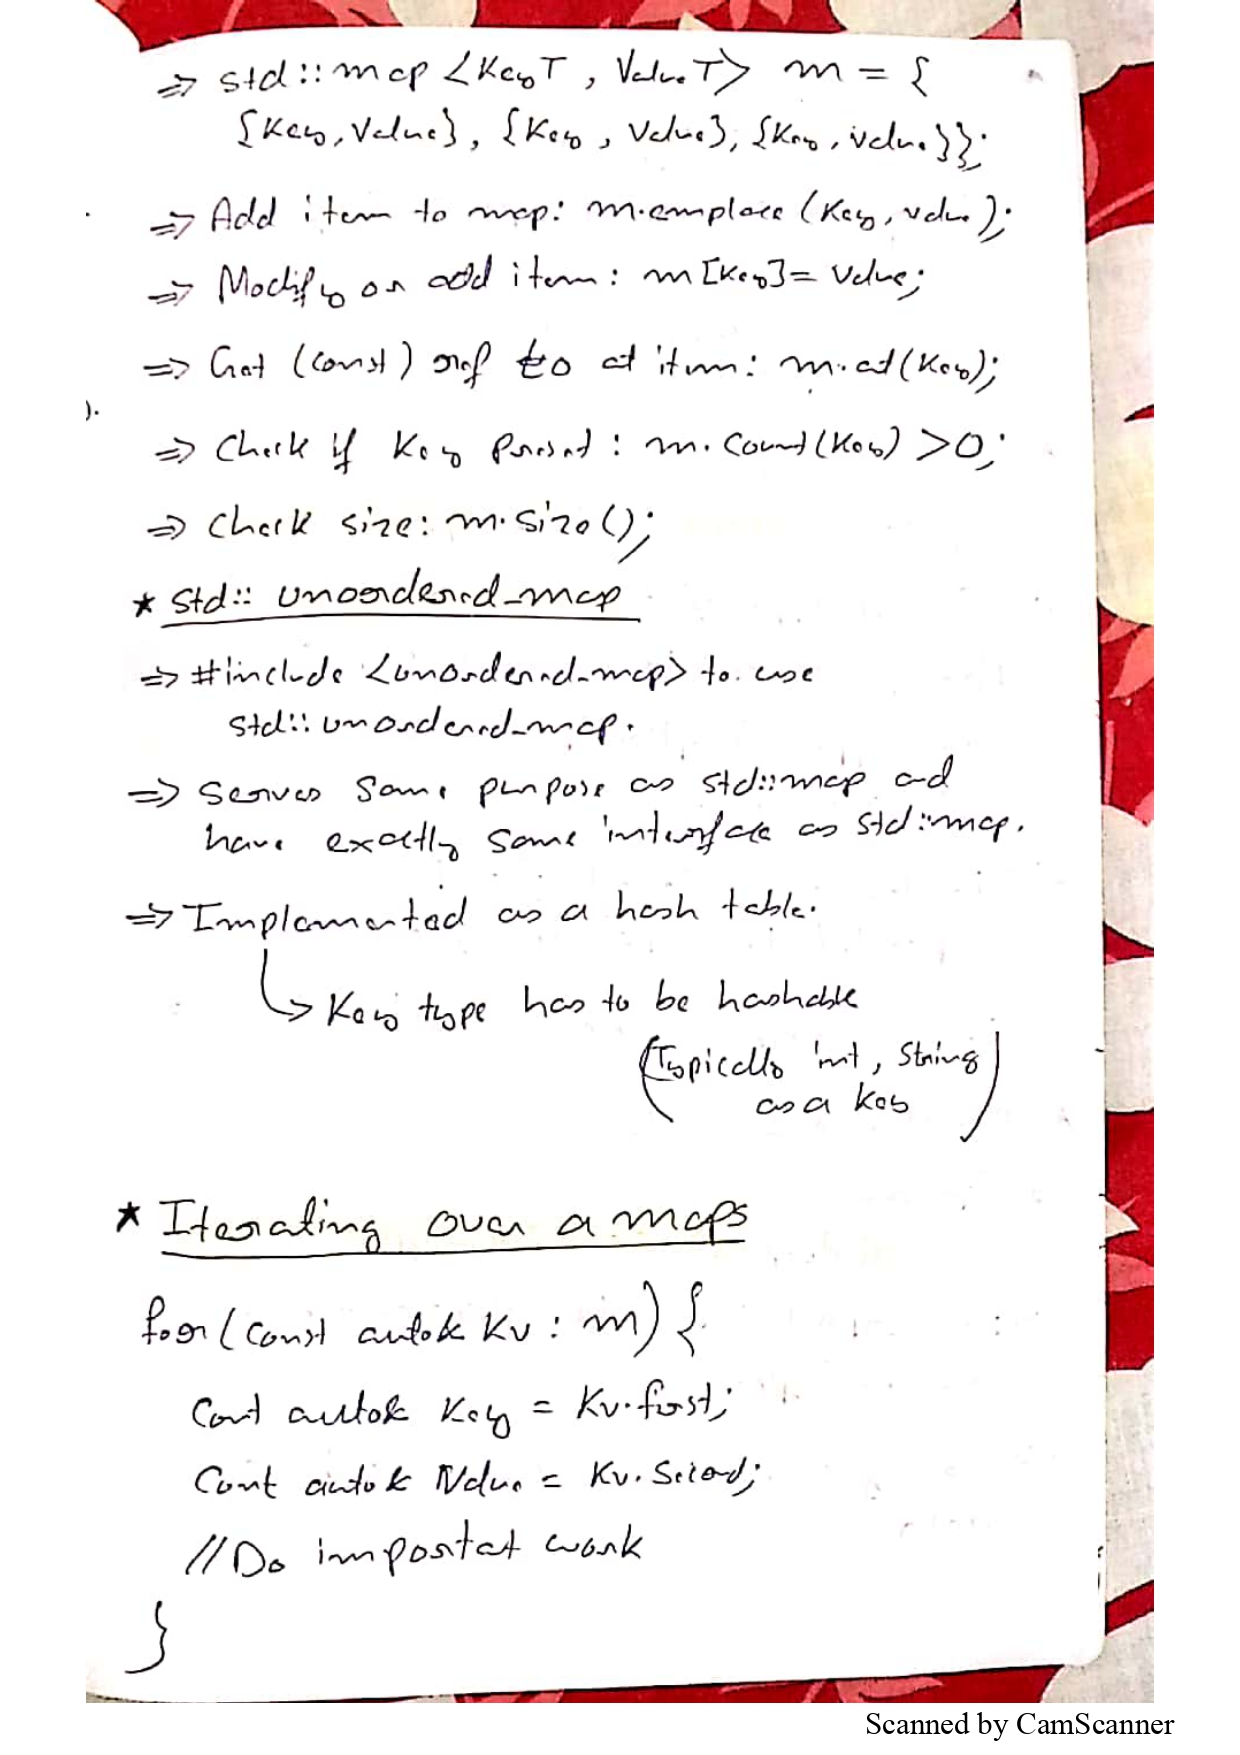 ⇒ std::map <KeyT, ValueT> m = {
{Key, Value}, {Key, Value}, {Key, value}};
⇒ Add item to map: m.emplace (Key, value);
⇒ Modify or add item: m[Key]= Value;
⇒ Get (const) ref to at item: m.at(Key);
).
⇒ Check if Key Present : m.Count(Key) >0;
⇒ Check size: m.size();
★ Std:: unoordered_map
⇒ #include <unordered_map> to use
std:: unordered_map.
⇒ Serves Same purpose as std::map and
have exactly same interface as std::map.
⇒ Implemented as a hash table.
↳ Key type has to be hashable
(Typically int, String
as a key)
★ Iterating over a maps
for(const auto& Kv : m) {
Const auto& Key = Kv.first;
Const auto& Value = Kv.Second;
//Do important work
}
Scanned by CamScanner